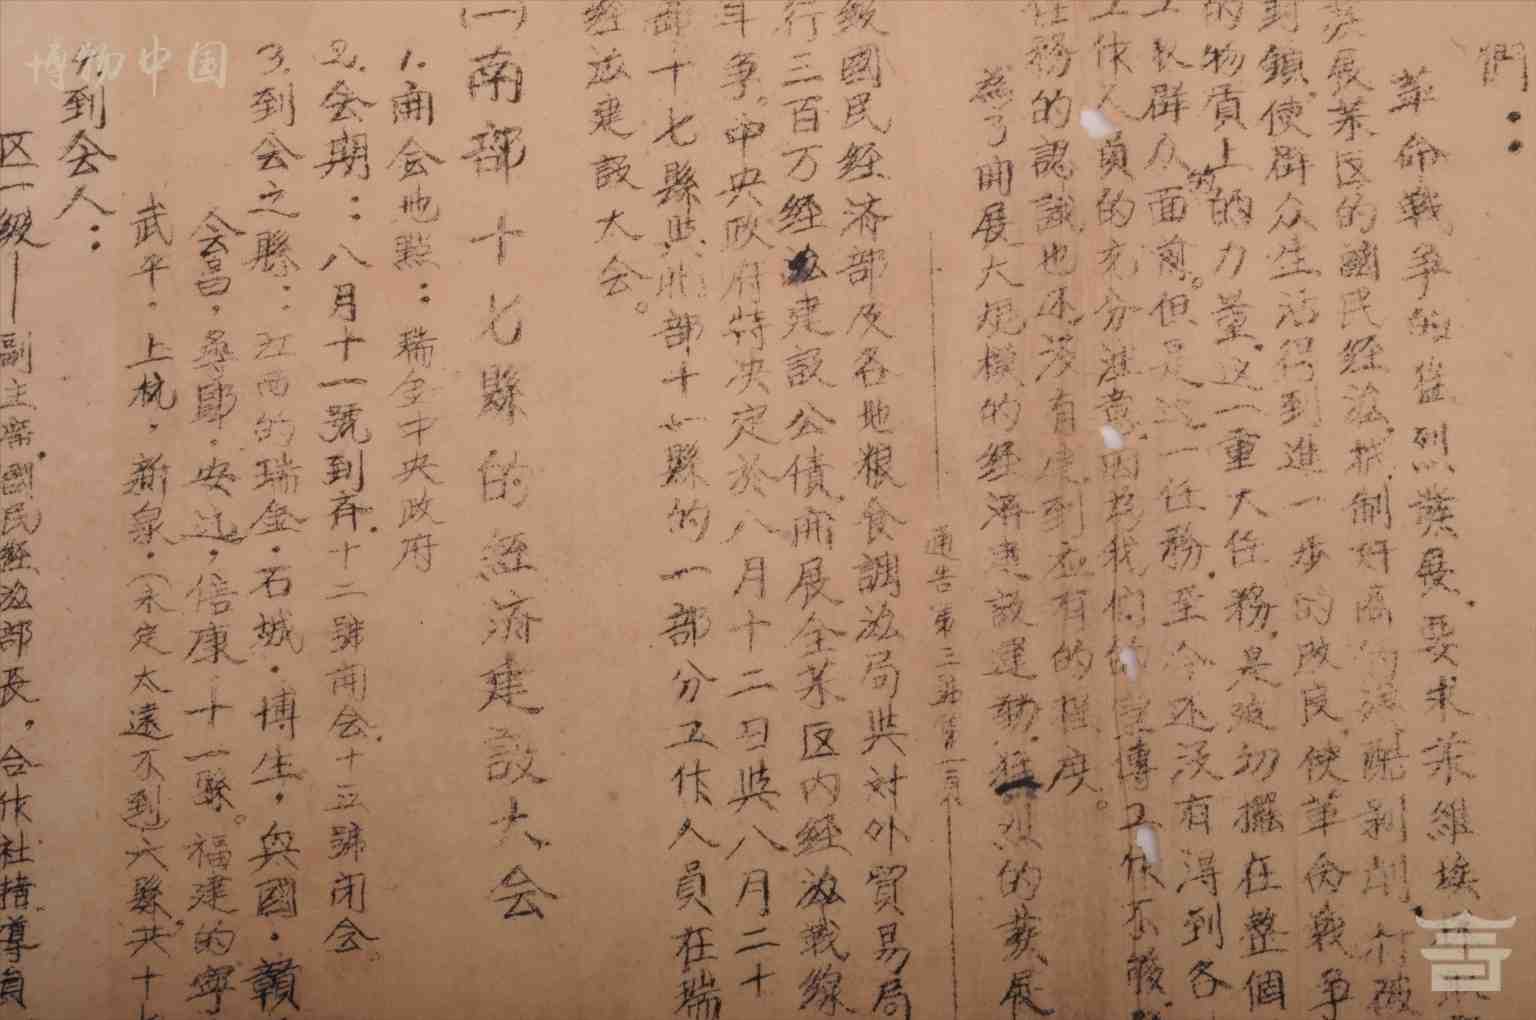 們：
革命戰争的猛烈發展，要求苏維埃
發展苏区的國民经济，抵制奸商的残酷剥削，打破
封鎖，使群众生活得到進一步的改良，使革命戰争
的物質上的力量，这一重大任務，是迫切擺在整個
工农群众的面前。但是这一任務，至今还没有得到各
工作人員的充分注意，因為我们的宣傳工作不夠，
任務的認識也还没有達到应有的程度。
為了開展大規模的经濟建設運動，猛烈的發展
通告第三号第一頁
级國民经济部及各地粮食調济局與对外貿易局
行三百万经济建設公債，開展全苏区内经济戰線
斗争。中央政府特决定於八月十二日與八月二十
部十七縣與北部十一縣的一部分工作人員在瑞
经济建設大会。
(一)南部十七縣的經濟建設大会
1.開会地點：瑞金中央政府
2.会期：八月十一號到齐，十二號開会，十五號闭会。
3.到会之縣：江西的瑞金·石城·博生，興國·贛
会昌，尋鄔·安远，信康十一縣。福建的寧
武平·上杭，新泉·(永定太遠不到)六縣共十七
4.到会人：
区一级——副主席，國民經济部長，合作社指導員
博物中国